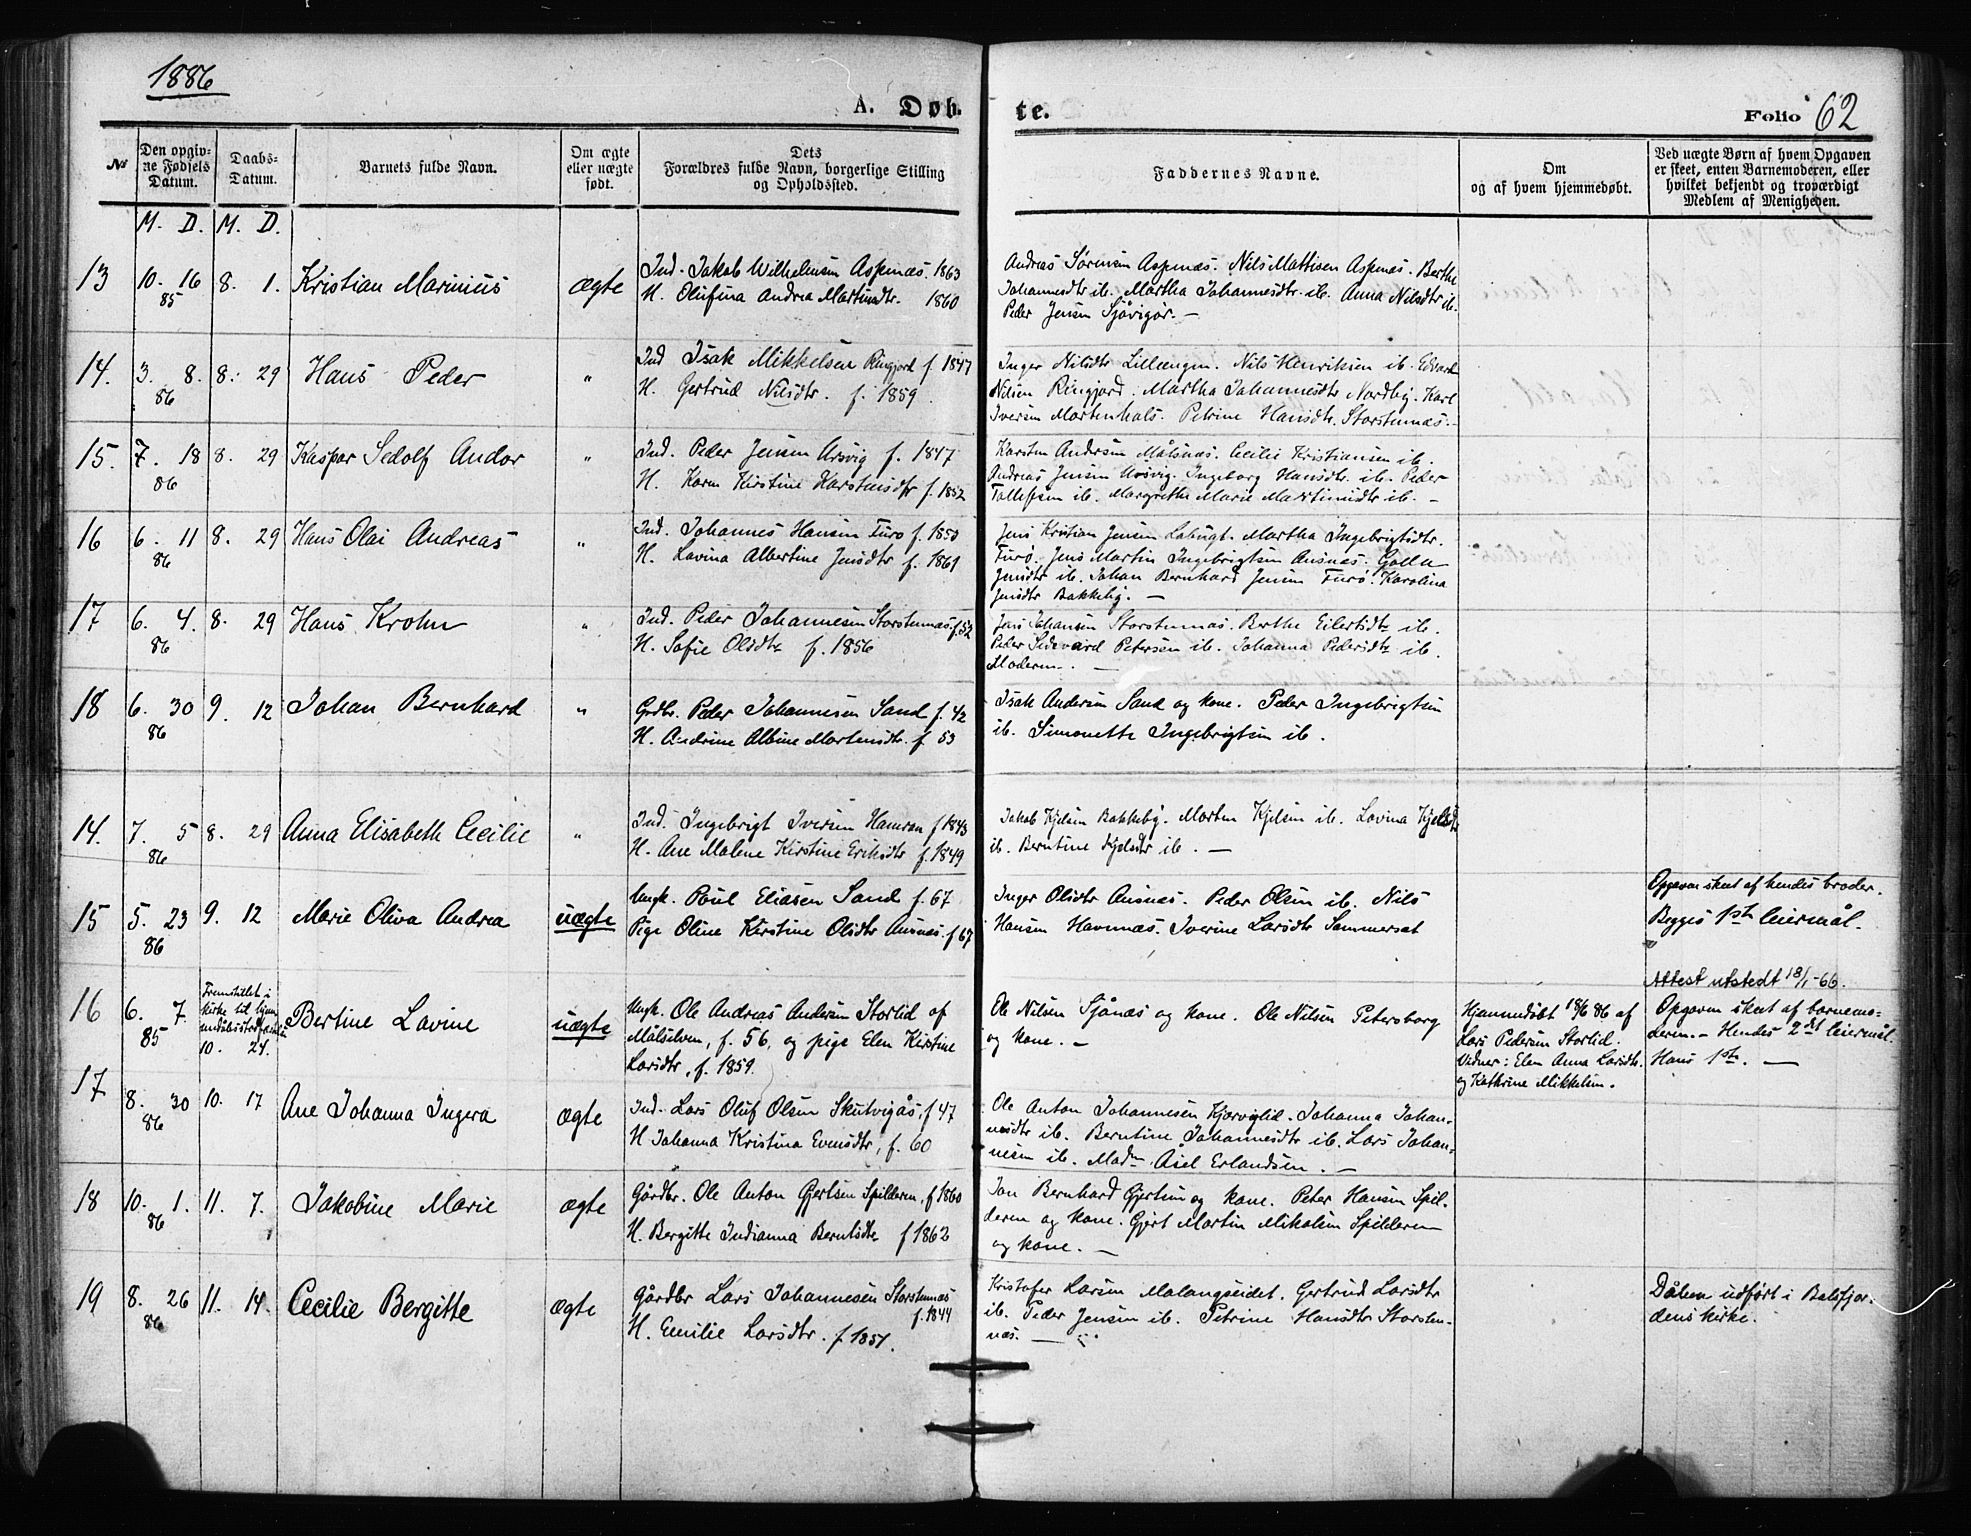 1886
A. Døb.
te.
Folio 62
No
Den opgiv-
ne Fødsels
Datum.
Daabs-
Datum.
Barnets fulde Navn.
Om ægte
eller uægte
født.
Dets
Forældres fulde Navn, borgerlige Stilling
og Opholdssted.
Faddernes Navne.
Om
og af hvem hjemmedøbt.
Ved uægte Børn af hvem Opgaven
er skeet, enten Barnemoderen, eller
hvilket bekjendt og troværdigt
Medlem af Menigheden.
M. D. M. D.
13 10. 16 8. 1. Kristian Marinius ægte Ind. Jakob Wilhelmsen Aspenæs. 1863
85 H. Olufina Andrea Martinsdtr. 1860
Andreas Sørensen Aspenæs. Nils Mattisen Aspenæs. Berthe
Johannesdtr ib. Martha Johannesdtr. ib. Anna Nilsdtr ib.
Peder Jensen Sjåvigor. —
14. 3. 8. 8. 29 Hans Peder " Ind Isak Mikkelsen Ringjord f. 1847
86 H. Gertrud Nilsdtr. f. 1859.
Inger Nilsdtr Lillengen. Nils Henriksen ib. Edvard
Nilsen Ringjord. Martha Johannesdtr Nordby. Karl
Iversen Martenhals. Petrine Hansdtr. Storstennæs. —
15. 7. 18 8. 29 Kaspar Sedolf Andor " Ind. Peder Jensen Aursvig f. 1847
86 H. Karen Kirstine Karstensdtr f. 1852
Karsten Andersen Målsnæs. Cecilie Kristiansen ib.
Andreas Jensen Aursvig. Ingeborg Hansdtr ib. Peder
Tollefsen ib. Margrethe Marie Martinusdtr ib. —
16 6. 11 8. 29 Hans Olai Andreas " Ind. Johannes Hansen Furø f. 1853
86 H. Lovina Albertine Jensdtr f. 1861
Jens Kristian Jensen Labugt. Martha Ingebrigtsdtr.
Furø. Jens Martin Ingebrigtsen Ausnæs. Golla
Jensdtr ib. Johan Bernhard Jensen Furø. Karolina
Jensdtr Bakkeby. —
17 6. 4. 8. 29 Hans Krohn " Ind. Peder Johannesen Storstennæs f. 52
86 H. Sofie Olsdtr f. 1856
Jens Johansen Storstennæs. Berthe Eilertsdtr ib.
Peder Sedevard Petersen ib. Johanna Pedersdtr ib.
Moderen. —
18 6. 30 9. 12 Johan Bernhard " Grdbr. Peder Johannesen Sand f. 42
86 H. Andrine Albine Mortensdtr. f. 53
Isak Andersen Sand og kone. Peder Ingebrigtsen
ib. Simonette Ingebrigtsen ib.
14. 7. 5 8. 29 Anna Elisabeth Cecilie " Ind. Ingebrigt Iversen Hamran f 1843
86 H. Ane Malene Kirstine Eriksdtr f. 1849
Jakob Kjelsen Bakkeby. Morten Kjelsen ib. Lovina Kjelsdtr
ib. Berntine Kjelsdtr ib. —
15 5. 23 9. 12 Marie Oliva Andrea uægte Ungk. Poul Eliasen Sand f. 67
86 Pige Oline Kirstine Olsdtr Ausnæs. f 67
Inger Olsdtr Ausnæs. Peder Olsen ib. Nils
Hansen Havnnæs. Iverine Larsdtr Sommerset
Opgaven skeet af hendes broder.
Begges 1ste leiermål.
16 6. 7. Fremstillet i
kirke til hjem-
medåbsstadfæstelse
85 10. 24. Bertine Lovine uægte Ungk. Ole Andreas Andersen Storlid af
Målselven, f. 56, og pige Elen Kirstine
Larsdtr, f. 1859.
Ole Nilsen Sjånæs og kone. Ole Nilsen Petersborg
og kone. —
Hjemmedøbt 18/6 86 af
Lars Pedersen Storlid.
Vidner: Elen Anna Larsdtr.
og Kathrine Mikkelsen.
Attest utstedt 18/1-66.
Opgaven skeet af barnemo-
deren. — Hendes 2det leiermål.
Hans 1ste. —
17 8. 30 10. 17 Ane Johanna Ingera ægte Ind. Lars Oluf Olsen Skutvigås, f 47
86 H Johanna Kristina Evensdtr, f. 60
Ole Anton Johannesen Kjærviglid. Johanna Johan-
nesdtr ib. Berntine Johannesdtr ib. Lars Johan-
nesen ib. Madm. Asel Erlandsen. —
18 10. 1. 11. 7. Jakobine Marie ægte Gårdbr. Ole Anton Gjertsen Spilderen, f 1860
86 H. Bergitte Indianna Berntsdtr f 1862
Jon Bernhard Gjertsen og kone. Peter Hansen Spil-
deren og kone. Gjert Martin Mikalsen Spilderen
og kone. —
19 8. 26 11. 14. Cecilie Bergitte ægte Gårdbr Lars Johannesen Storstennæs
f. 1844
86 H. Emilie Larsdtr. f 1851.
Kristofer Larsen Malangseidet. Gertrud Larsdtr
ib. Peder Jensen ib. Petrine Hansdtr Storsten-
næs. —
Dåben udført i Balsfjor-
dens kirke.